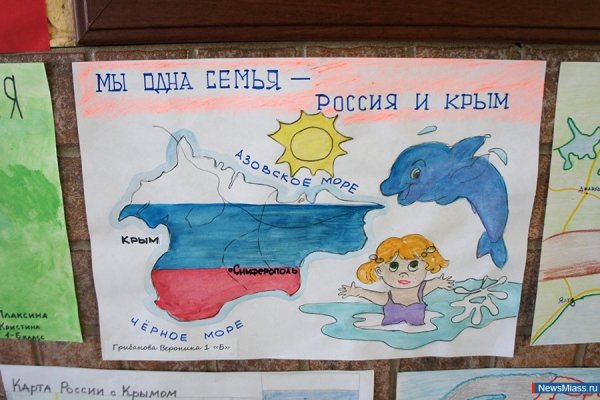 МЫ ОДНА СЕМЬЯ —
РОССИЯ И КРЫМ
АЗОВСКОЕ МОРЕ
КРЫМ
СИМФЕРОПОЛЬ
ЧЁРНОЕ МОРЕ
Грибанова Вероника 1 «Б»
Я
Плаксина
Кристина
1-Б класс
Карта России с Крымом
Ялта
NewsMiass.ru